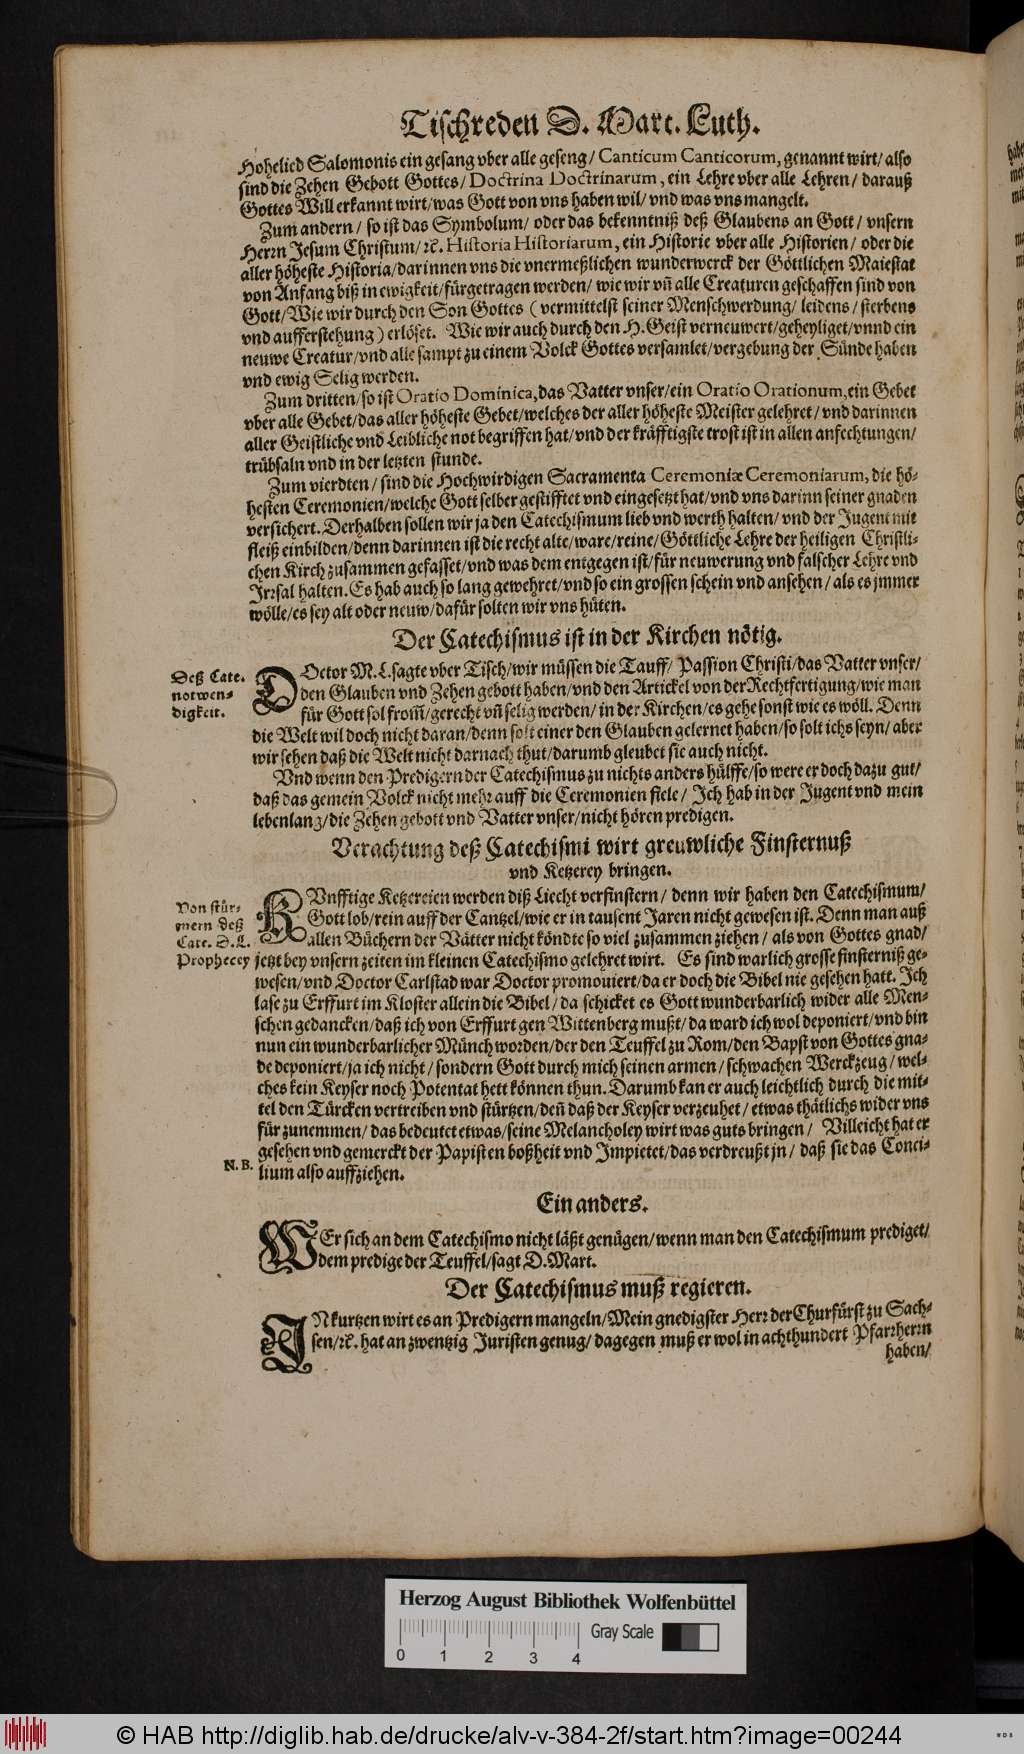 Tischreden D. Mart. Luth.
Hohelied Salomonis ein gesang vber alle geseng/ Canticum Canticorum, genannt wirt/ also
sind die Zehen Gebott Gottes/ Doctrina Doctrinarum, ein Lehre vber alle Lehren/ darauß
Gottes Will erkannt wirt/ was Gott von vns haben wil/ vnd was vns mangelt.
Zum andern/ so ist das Symbolum/ oder das bekenntniß deß Glaubens an Gott/ vnsern
Herrn Jesum Christum/ ꝛc. Historia Historiarum, ein Historie vber alle Historien/ oder die
aller höheste Historia/ darinnen vns die vnermeßlichen wunderwerck der Göttlichen Maiestat
von Anfang biß in ewigkeit/ fürgetragen werden/ wie wir vñ alle Creaturen geschaffen sind von
Gott/ Wie wir durch den Son Gottes (vermittelst seiner Menschwerdung/ leidens/ sterbens
vnd aufferstehung) erlöset. Wie wir auch durch den H. Geist verneuwert/ geheyliget/ vnnd ein
neuwe Creatur/ vnd alle sampt zu einem Volck Gottes versamlet/ vergebung der Sünde haben
vnd ewig Selig werden.
Zum dritten/ so ist Oratio Dominica, das Vatter vnser/ ein Oratio Orationum, ein Gebet
vber alle Gebet/ das aller höheste Gebet/ welches der aller höheste Meister gelehret/ vnd darinnen
aller Geistliche vnd Leibliche not begriffen hat/ vnd der kräfftigste trost ist in allen anfechtungen/
trübsaln vnd in der letzten stunde.
Zum vierdten/ sind die Hochwirdigen Sacramenta Ceremoniæ Ceremoniarum, die hö-
hesten Ceremonien/ welche Gott selber gestifftet vnd eingesetzt hat/ vnd vns darinn seiner gnaden
versichert. Derhalben sollen wir ja den Catechismum lieb vnd werth halten/ vnd der Jugent mit
fleiß einbilden/ denn darinnen ist die recht alte/ ware/ reine/ Göttliche Lehre der heiligen Christli-
chen Kirch zusammen gefasset/ vnd was dem entgegen ist/ für neuwerung vnd falscher Lehre vnd
Jrrsal halten. Es hab auch so lang gewehret/ vnd so ein grossen schein vnd ansehen/ als es jmmer
wölle/ es sey alt oder neuw/ dafür solten wir vns hüten.
Der Catechismus ist in der Kirchen nötig.
Deß Cate.
notwen-
digkeit.
DOctor M. L. sagte vber Tisch/ wir müssen die Tauff/ Passion Christi/ das Vatter vnser/
den Glauben vnd Zehen gebott haben/ vnd den Artickel von der Rechtfertigung/ wie man
für Gott sol from̃/ gerecht vñ selig werden/ in der Kirchen/ es gehe sonst wie es wöll. Denn
die Welt wil doch nicht daran/ denn solt einer den Glauben gelernet haben/ so solt ichs seyn/ aber
wir sehen daß die Welt nicht darnach thut/ darumb gleubet sie auch nicht.
Vnd wenn den Predigern der Catechismus zu nichts anders hülffe/ so were er doch dazu gut/
daß das gemein Volck nicht mehr auff die Ceremonien fiele/ Jch hab in der Jugent vnd mein
lebenlang/ die Zehen gebott vnd Vatter vnser/ nicht hören predigen.
Verachtung deß Catechismi wirt greuwliche Finsternuß
vnd Ketzerey bringen.
Von stür-
mern deß
Cate. D. L.
Prophecey
KVnfftige Ketzereien werden diß Liecht verfinstern/ denn wir haben den Catechismum/
Gott lob/ rein auff der Cantzel/ wie er in tausent Jaren nicht gewesen ist. Denn man auß
allen Büchern der Vätter nicht köndte so viel zusammen ziehen/ als von Gottes gnad/
jetzt bey vnsern zeiten im kleinen Catechismo gelehret wirt. Es sind warlich grosse finsterniß ge-
wesen/ vnd Doctor Carlstad war Doctor promouiert/ da er doch die Bibel nie gesehen hatt. Jch
lase zu Erffurt im Kloster allein die Bibel/ da schicket es Gott wunderbarlich wider alle Men-
schen gedancken/ daß ich von Erffurt gen Wittenberg mußt/ da ward ich wol deponiert/ vnd bin
nun ein wunderbarlicher Münch worden/ der den Teuffel zu Rom/ den Bapst von Gottes gna-
de deponiert/ ja ich nicht/ sondern Gott durch mich seinen armen/ schwachen Werckzeug/ wel-
ches kein Keyser noch Potentat hett können thun. Darumb kan er auch leichtlich durch die mit-
tel den Türcken vertreiben vnd stürtzen/ deñ daß der Keyser verzeuhet/ etwas thätlichs wider vns
für zunemmen/ das bedeutet etwas/ seine Melancholey wirt was guts bringen/ Villeicht hat er
gesehen vnd gemerckt der Papisten boßheit vnd Impietet/ das verdreußt jn/ daß sie das Conci-
N. B. lium also auffziehen.
Ein anders.
WEr sich an dem Catechismo nicht läßt genügen/ wenn man den Catechismum prediget/
dem predige der Teuffel/ sagt D. Mart.
Der Catechismus muß regieren.
JN kurtzen wirt es an Predigern mangeln/ Mein gnedigster Herr der Churfürst zu Sach-
sen/ ꝛc. hat an zwentzig Juristen genug/ dagegen muß er wol in achthundert Pfarrherrn
haben/
Herzog August Bibliothek Wolfenbüttel
Gray Scale
0 1 2 3 4
© HAB http://diglib.hab.de/drucke/alv-v-384-2f/start.htm?image=00244